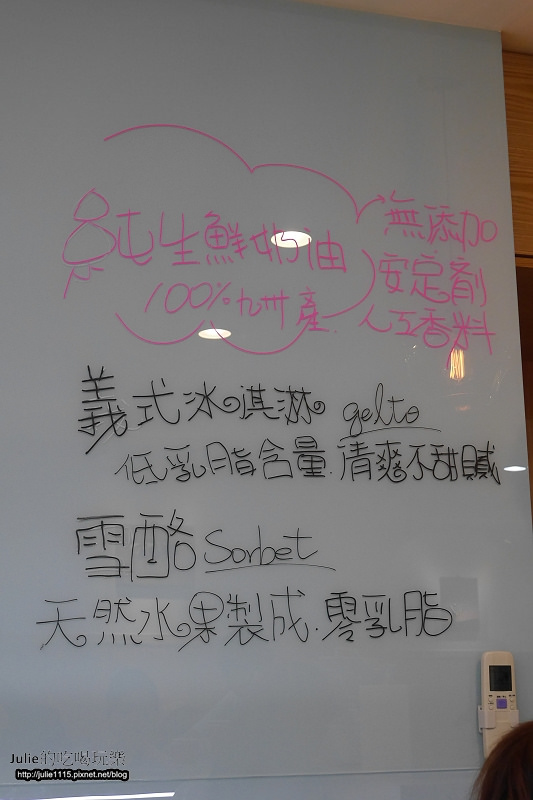 純生鮮奶油
100%九州產.
無添加
安定劑
人工香料
義式冰淇淋 gelto
低乳脂含量.清爽不甜膩
雪酪 Sorbet
天然水果製成.零乳脂
Julie的吃喝玩樂
http://julie1115.pixnet.net/blog